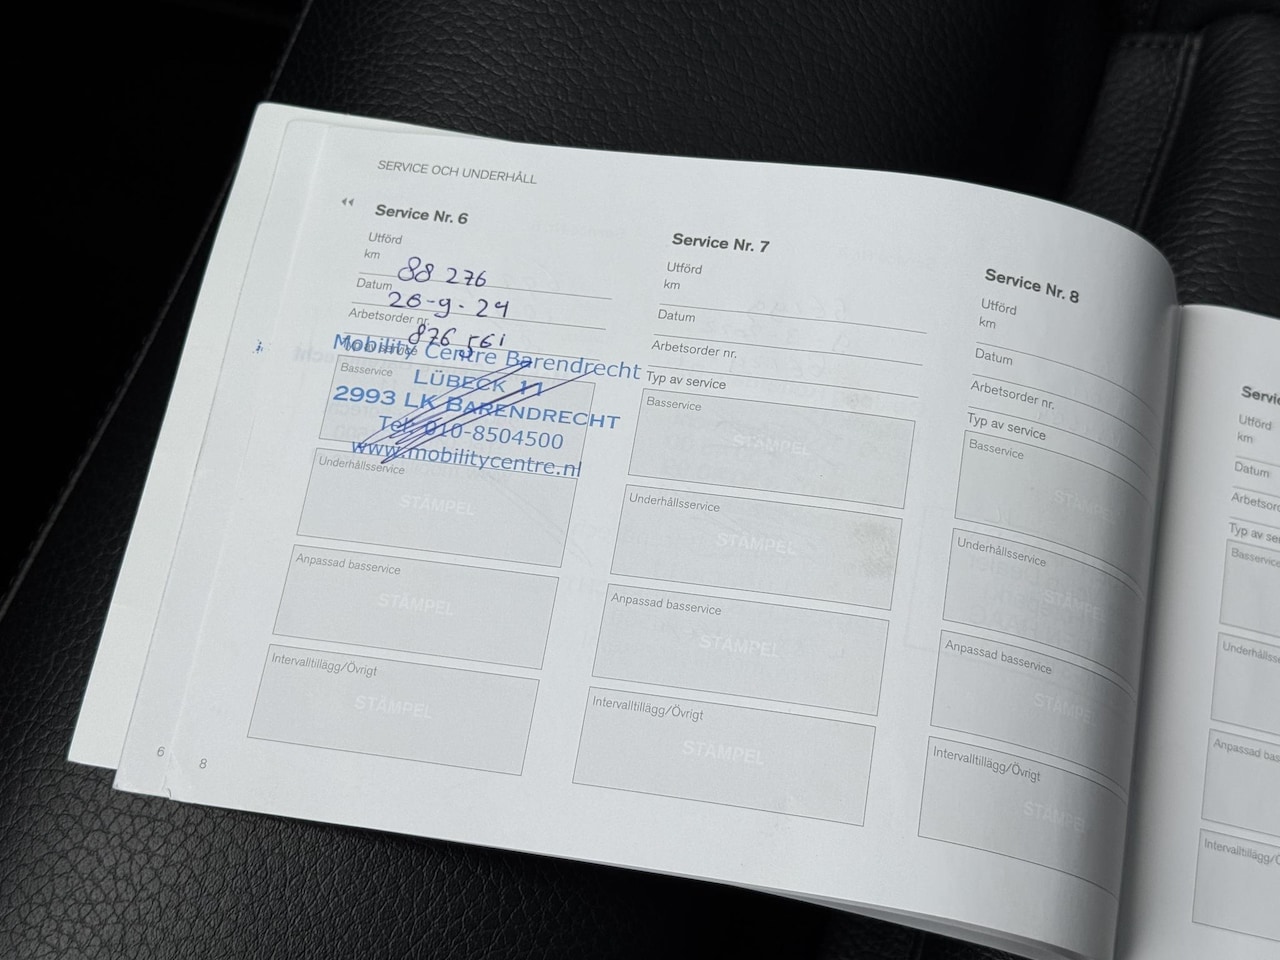 SERVICE OCH UNDERHÅLL
Service Nr. 6
Utförd
km 88 276
Datum 26-9-24
Arbetsorder nr. 876 561
Typ av service
Mobility Centre Barendrecht
Basservice
LÜBECK 11
2993 LK BARENDRECHT
Tel: 010-8504500
www.mobilitycentre.nl
Underhållsservice
STÄMPEL
Anpassad basservice
STÄMPEL
Intervalltillägg/Övrigt
STÄMPEL
Service Nr. 7
Utförd
km
Datum
Arbetsorder nr.
Typ av service
Basservice
STÄMPEL
Underhållsservice
STÄMPEL
Anpassad basservice
STÄMPEL
Intervalltillägg/Övrigt
STÄMPEL
Service Nr. 8
Utförd
km
Datum
Arbetsorder nr.
Typ av service
Basservice
STÄMPEL
Underhållsservice
STÄMPEL
Anpassad basservice
STÄMPEL
Intervalltillägg/Övrigt
STÄMPEL
6
8
Utförd
km
Datum
Basservice